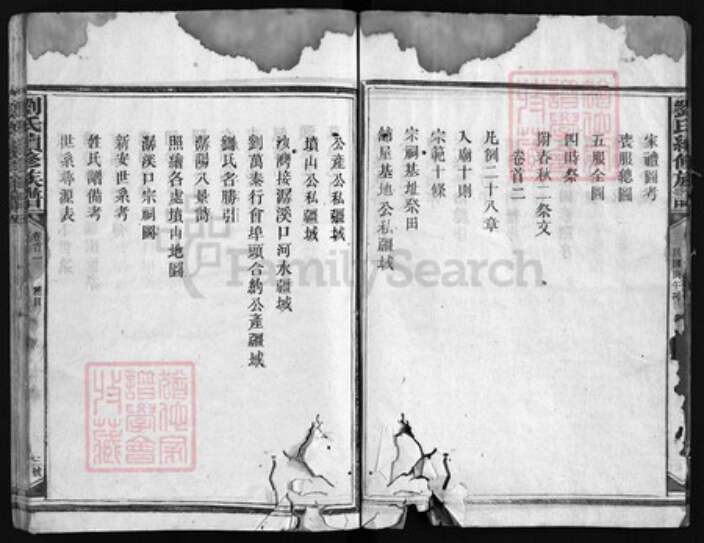 家禮圖考
喪服總圖
五服全圖
四時祭
附春秋二祭文
卷首二
凡例二十八章
入廟十則
宗範十條
宗祠基址祭田
舖屋基地公私疆域
公產公私疆域
墳山公私疆域
接潺溪口河水疆域
劉萬泰行會埠頭合約公產疆域
劉氏名勝引
潺陽八景詩
照繪各處墳山地圖
潺溪口宗祠圖
新安世系考
姓氏譜備考
世系尋源表
劉氏續修族譜
卷首一
FamilySearch